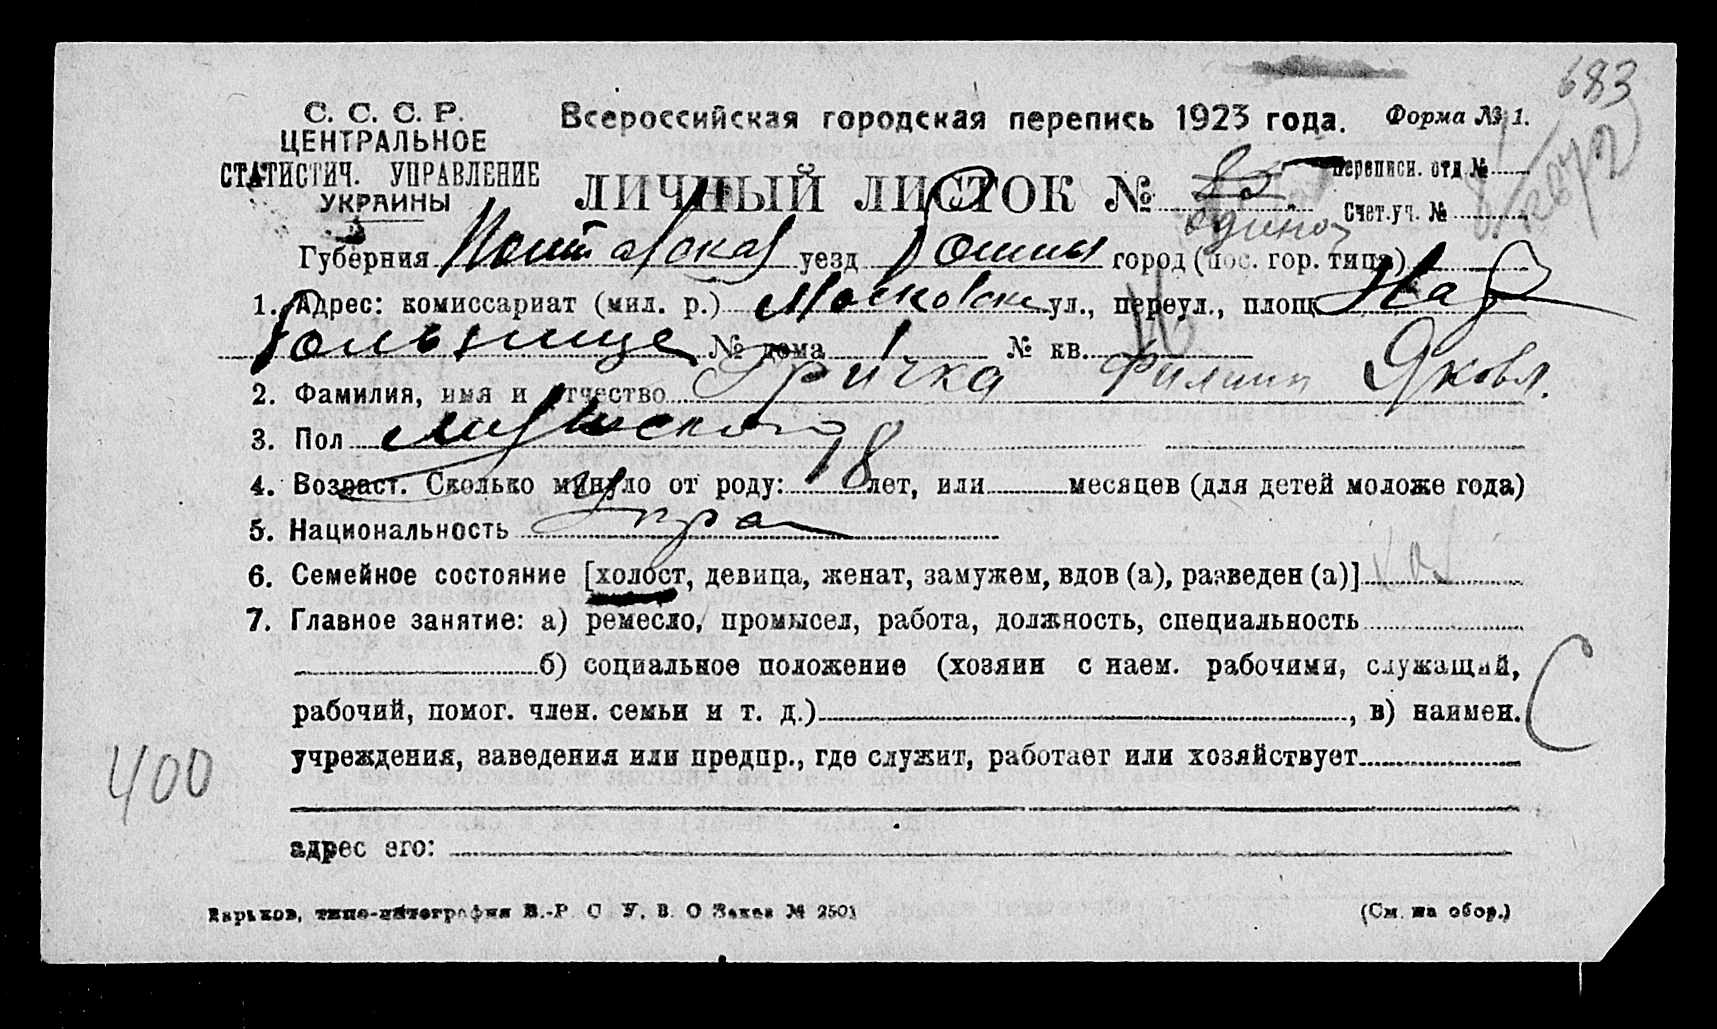 683
С. С. С. Р.
ЦЕНТРАЛЬНОЕ
СТАТИСТИЧ. УПРАВЛЕНИЕ
УКРАИНЫ
Всероссийская городская перепись 1923 года.
Форма № 1.
ЛИЧНЫЙ ЛИСТОК №
Переписн. отд №
Счет.уч. №
Губерния Полтавская уезд Ромны город (пос. гор. типа)
1. Адрес: комиссариат (мил. р.) Московск ул., переул., площ.
больнице № дома 1 № кв.
2. Фамилия, имя и отчество Гричка Филипп Яковл.
3. Пол мужской
4. Возраст. Сколько минуло от роду: 18 лет, или месяцев (для детей моложе года)
5. Национальность Укра
6. Семейное состояние [холост, девица, женат, замужем, вдов (а), разведен (а)]
7. Главное занятие: а) ремесло, промысел, работа, должность, специальность
б) социальное положение (хозяин с наем. рабочими, служащий,
рабочий, помог. член. семьи и т. д.) , в) наимен.
учреждения, заведения или предпр., где служит, работает или хозяйствует
С
400
адрес его:
Харьков, типо-литография В.-Р. С У. В. О Заказ № 2501
(См. на обор.)